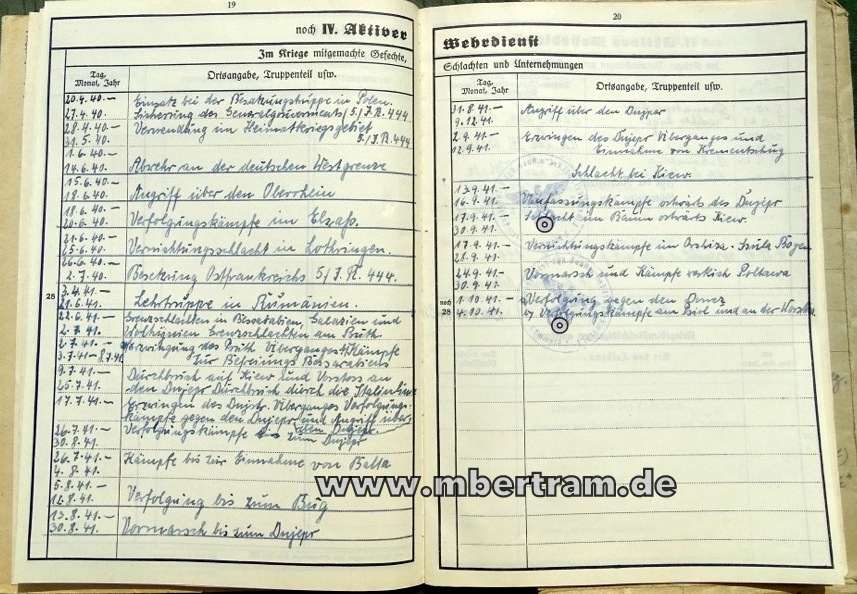 19
noch IV. Aktiver
Im Kriege mitgemachte Gefechte,
Tag, Monat, Jahr
Ortsangabe, Truppenteil usw.
20.4.40.— Einsatz bei der Besatzungstruppe in Polen.
27.4.40. Sicherung des Generalgouvernements 5/J.R. 444
28.4.40.— Verwendung im Heimatkriegsgebiet
31.5.40. 5/J.R. 444
1.6.40.—
14.6.40. Abwehr an der deutschen Westgrenze
15.6.40.—
18.6.40. Angriff über den Oberrhein
18.6.40.—
20.6.40. Verfolgungskämpfe im Elsaß.
21.6.40.—
25.6.40. Vernichtungsschlacht in Lothringen.
26.6.40.—
2.7.40. Besetzung Ostfrankreichs 5/J.R. 444.
28
3.4.41.—
21.6.41. Lehrtruppe in Rumänien.
22.6.41.— Grenzschlachten in Bessarabien, Galizien und
2.7.41. Wolhynien Grenzschlachten am Pruth.
2.7.41.— Erzwingung des Pruth Überganges Kämpfe
3.7.41— 8.7.41 zur Befreiung Bessarabiens
9.7.41.— Durchbruch auf Kiew und Vorstoss an
25.7.41. den Dnjepr Durchbruch durch die Stalinlinie
17.7.41.— Erzwingen des Dnjestr. Überganges Verfolgungs-
kämpfe gegen den Dnjepr und Angriff über
den Dnjepr.
26.7.41.— Verfolgungskämpfe bis zum Dnjepr
30.8.41.
26.7.41.— Kämpfe bis zur Einnahme von Balta
4.8.41.
5.8.41.—
12.8.41. Verfolgung bis zum Bug
13.8.41.— Vormarsch bis zum Dnjepr
30.8.41.
20
Wehrdienst
Schlachten und Unternehmungen
Tag, Monat, Jahr
Ortsangabe, Truppenteil usw.
31.8.41.— Angriff über den Dnjepr
9.12.41.
2.9.41.— Erzwingen des Dnjepr Überganges und
12.9.41. Einnahme von Krementschug
Schlacht bei Kiew.
13.9.41.—
16.9.41. Umfassungskämpfe ostwärts des Dnjepr
17.9.41.— Schlacht im Raum ostwärts Kiew.
30.9.41.
17.9.41.— Vernichtungskämpfe im Orshiza-Ssula Bogen
28.9.41.
24.9.41.— Vormarsch und Kämpfe Poltawa
30.9.41.
noch 28
1.10.41.— a) Verfolgung gegen den Donez
4.10.41. b) Verfolgungskämpfe am Psiol und an der Worskla
www.mbertram.de